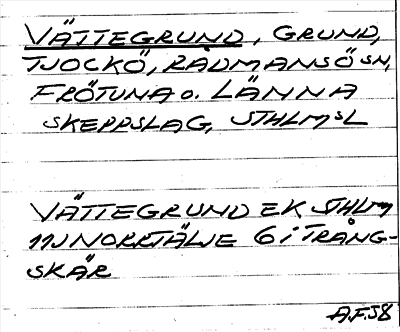 VÄTTEGRUND, GRUND,
TJOCKÖ, RÅDMANSÖ SN,
FRÖTUNA o. LÄNNA
SKEPPSLAG, STHLMSL
VÄTTEGRUND EK STHLM
11J NORRTÄLJE 6 i TRÅNG-
SKÄR
A.F.58